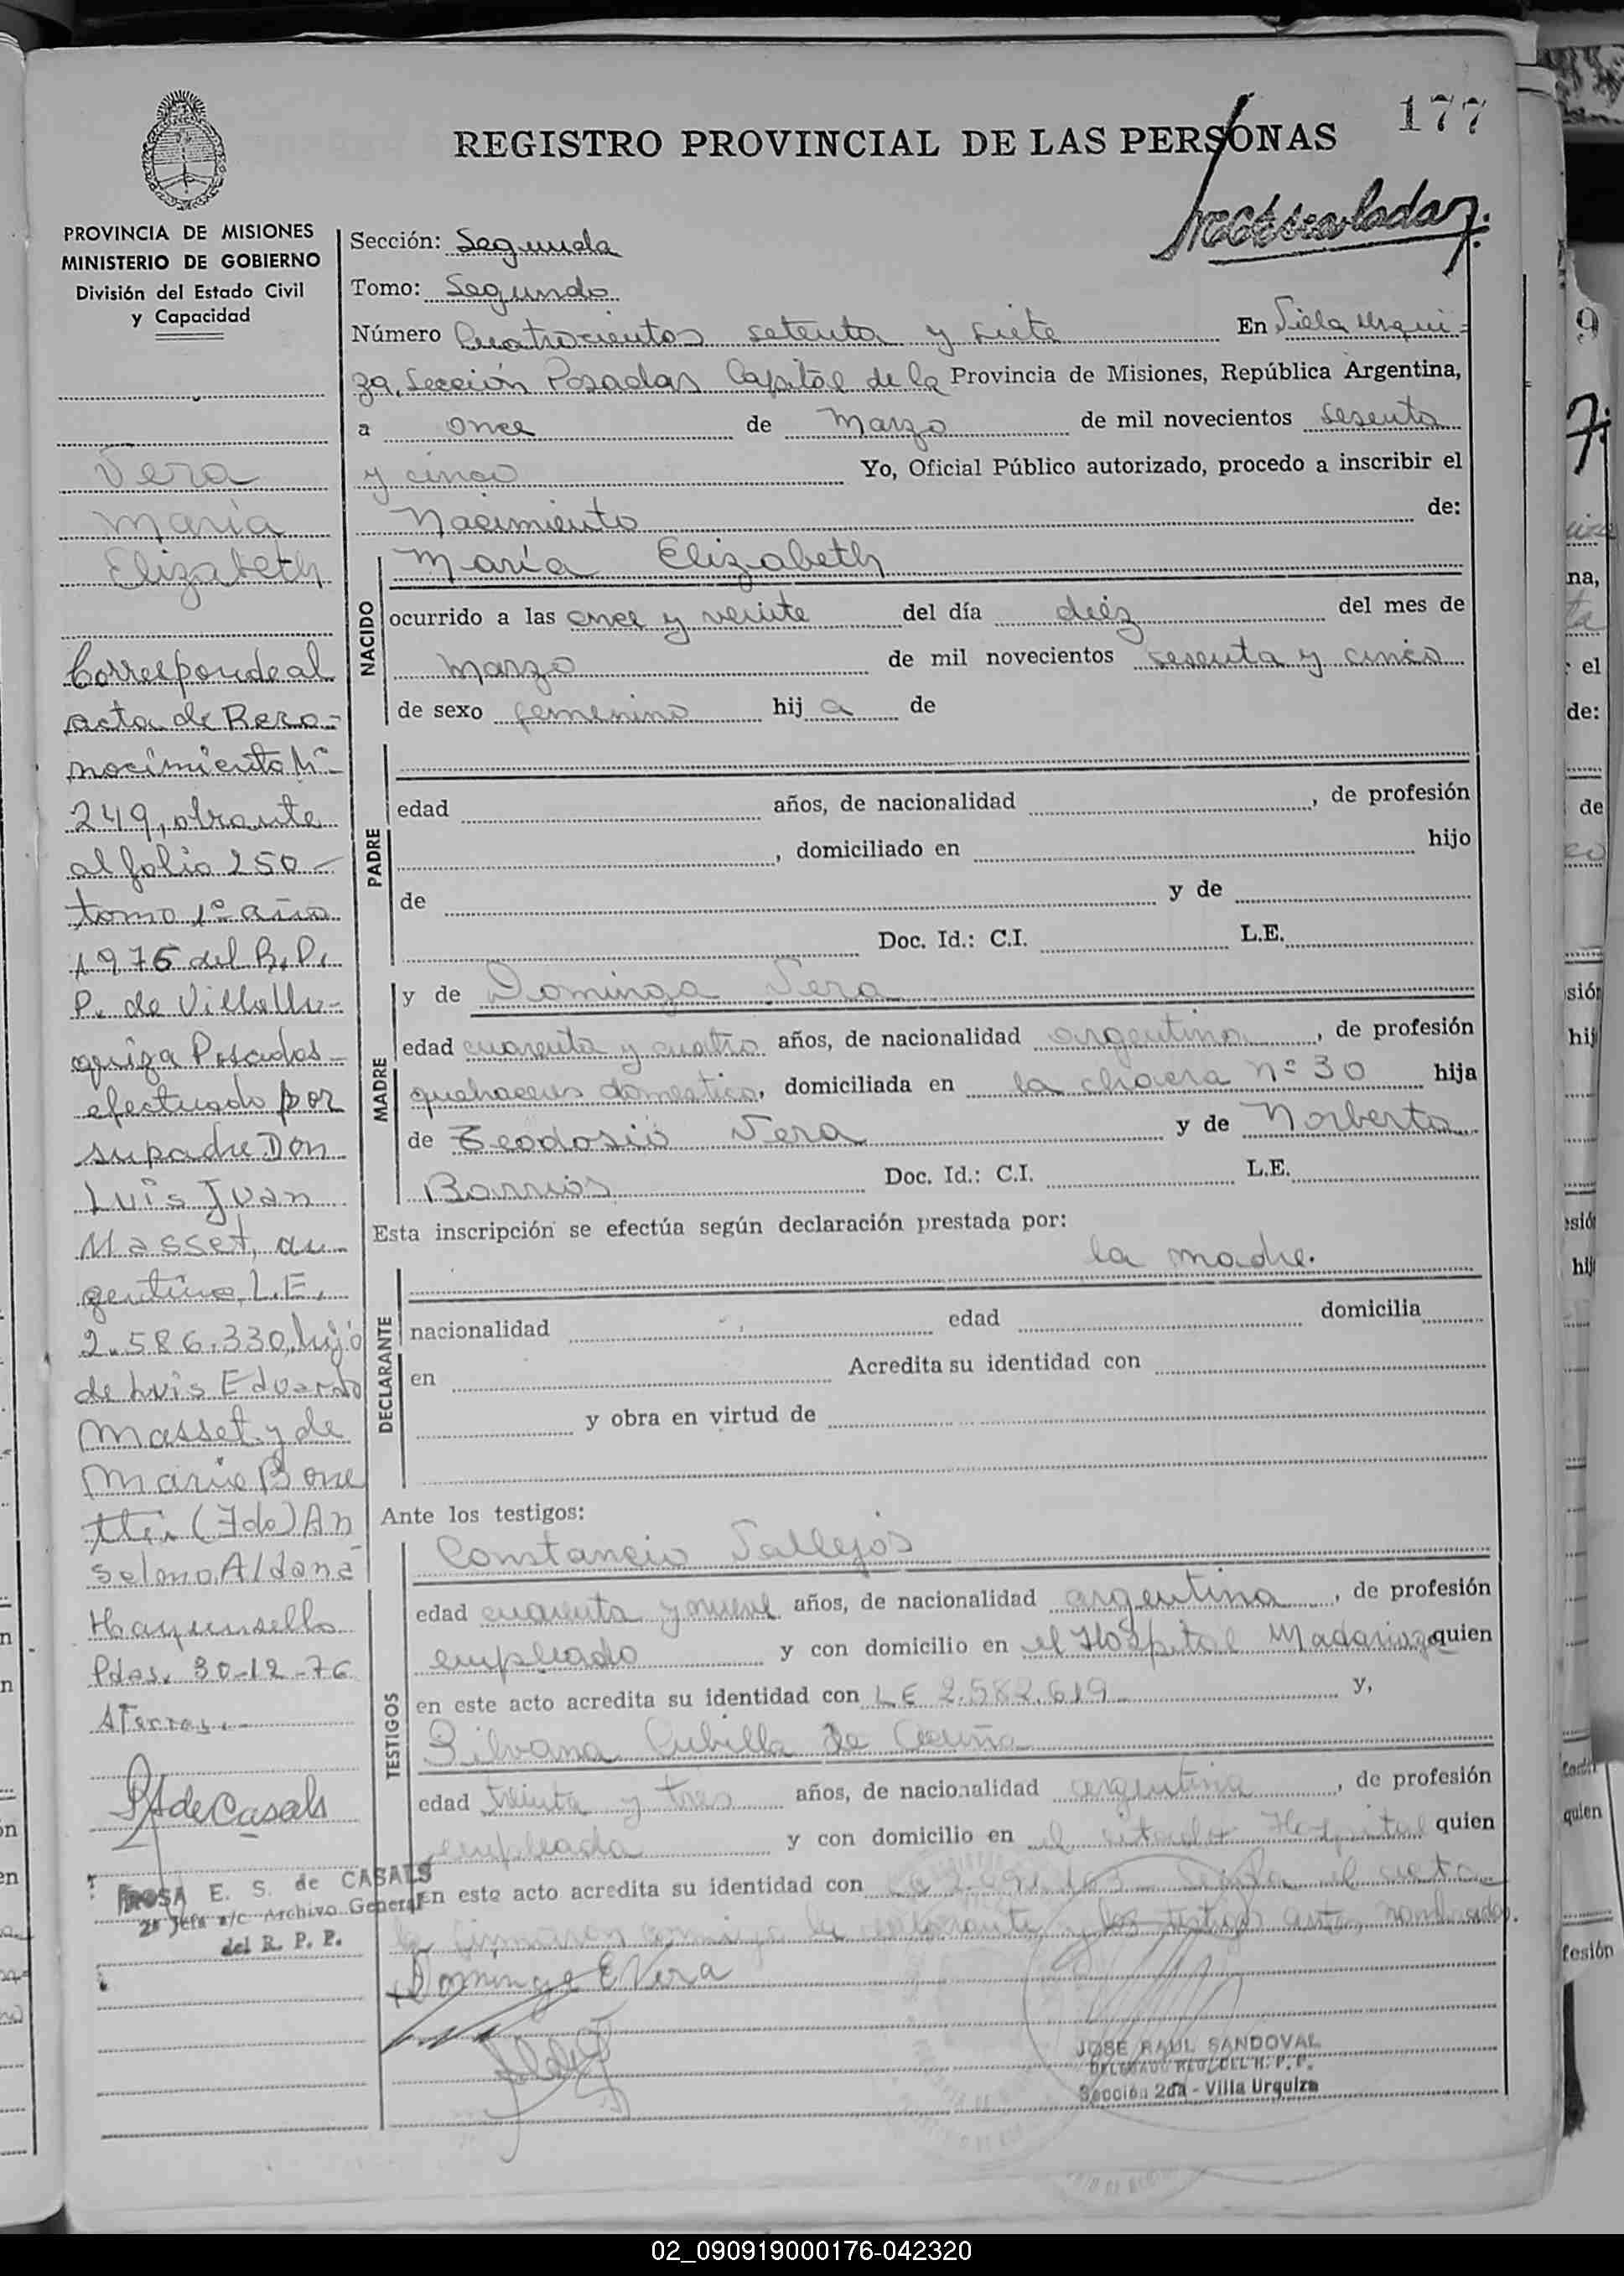 177
REGISTRO PROVINCIAL DE LAS PERSONAS
PROVINCIA DE MISIONES
MINISTERIO DE GOBIERNO
División del Estado Civil
y Capacidad
Vera
María
Elizabeth
Corresponde al
acta de Reco-
nocimiento Nº
249, obrante
al folio 250-
tomo 1º año
1976 del R.P.
P. de Villa Ur-
quiza Posadas
efectuado por
su padre Don
Luis Juan
Masset, ar-
gentino, L.E.
2.586.330, hijo
de Luis Eduardo
Masset y de
Marie Bone
ttti (Fdo) An
selmo Aldana
Pdas. 30-12-76
R S de Casals
ROSA E. S. de CASALS
2º Jefe a/c Archivo General
del R. P. P.
Sección: Segunda
Tomo: Segundo
Número Cuatrocientos setenta y siete En Villa Urqui-
za, Sección Posadas Capital de la Provincia de Misiones, República Argentina,
a once de Marzo de mil novecientos sesenta
y cinco Yo, Oficial Público autorizado, procedo a inscribir el
Nacimiento de:
NACIDO
María Elizabeth
ocurrido a las once y veinte del día diéz del mes de
marzo de mil novecientos sesenta y cinco
de sexo femenino hija de
PADRE
edad años, de nacionalidad , de profesión
, domiciliado en hijo
de y de
Doc. Id.: C.I. L.E.
MADRE
y de Dominga Vera
edad cuarenta y cuatro años, de nacionalidad argentina, de profesión
quehaceres domestico, domiciliada en la chacra nº 30 hija
de Teodosio Vera y de Norberta
Barrios Doc. Id.: C.I. L.E.
Esta inscripción se efectúa según declaración prestada por:
la madre.
DECLARANTE
nacionalidad edad domicilia
en Acredita su identidad con
y obra en virtud de
Ante los testigos:
TESTIGOS
Constancio Vallejos
edad cuarenta y nueve años, de nacionalidad argentina, de profesión
empleado y con domicilio en el Hospital Madariaga quien
en este acto acredita su identidad con LE 2.582.619 y,
Silvana Cubilla de Acuña
edad treinta y tres años, de nacionalidad argentina, de profesión
empleada y con domicilio en el citado Hospital quien
en este acto acredita su identidad con
firmaron conmigo la declarante y los testigos antes nombrados.
Dominga E Vera
JOSE RAUL SANDOVAL
DELEGADO REG. DEL R. P. P.
Sección 2da - Villa Urquiza
02_090919000176-042320